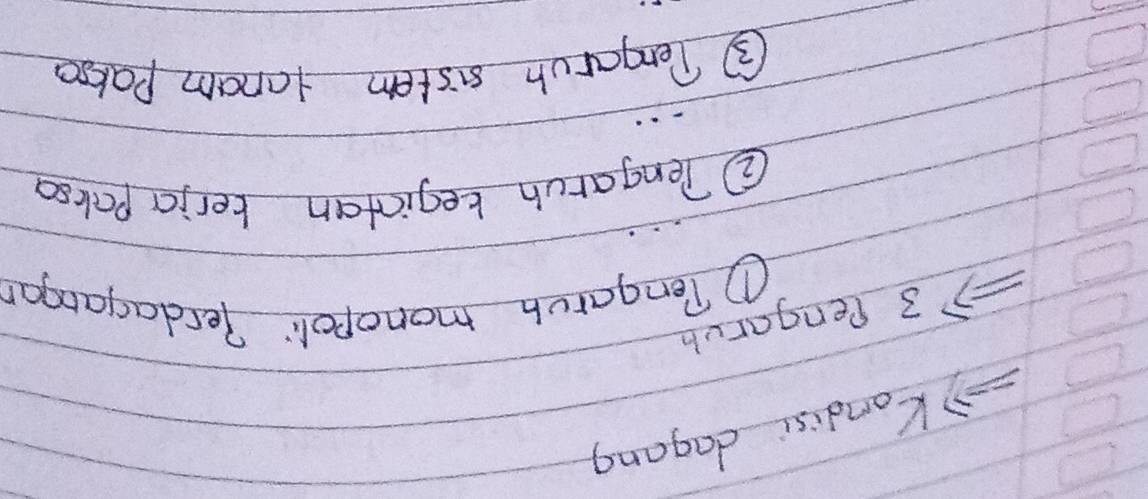 => Kondisi dagang
=> 3 Pengaruh
① Pengaruh monopoli Perdagangan
...
② Pengaruh kegiatan kerja Paksa
...
③ Pengaruh sistem tanam Paksa